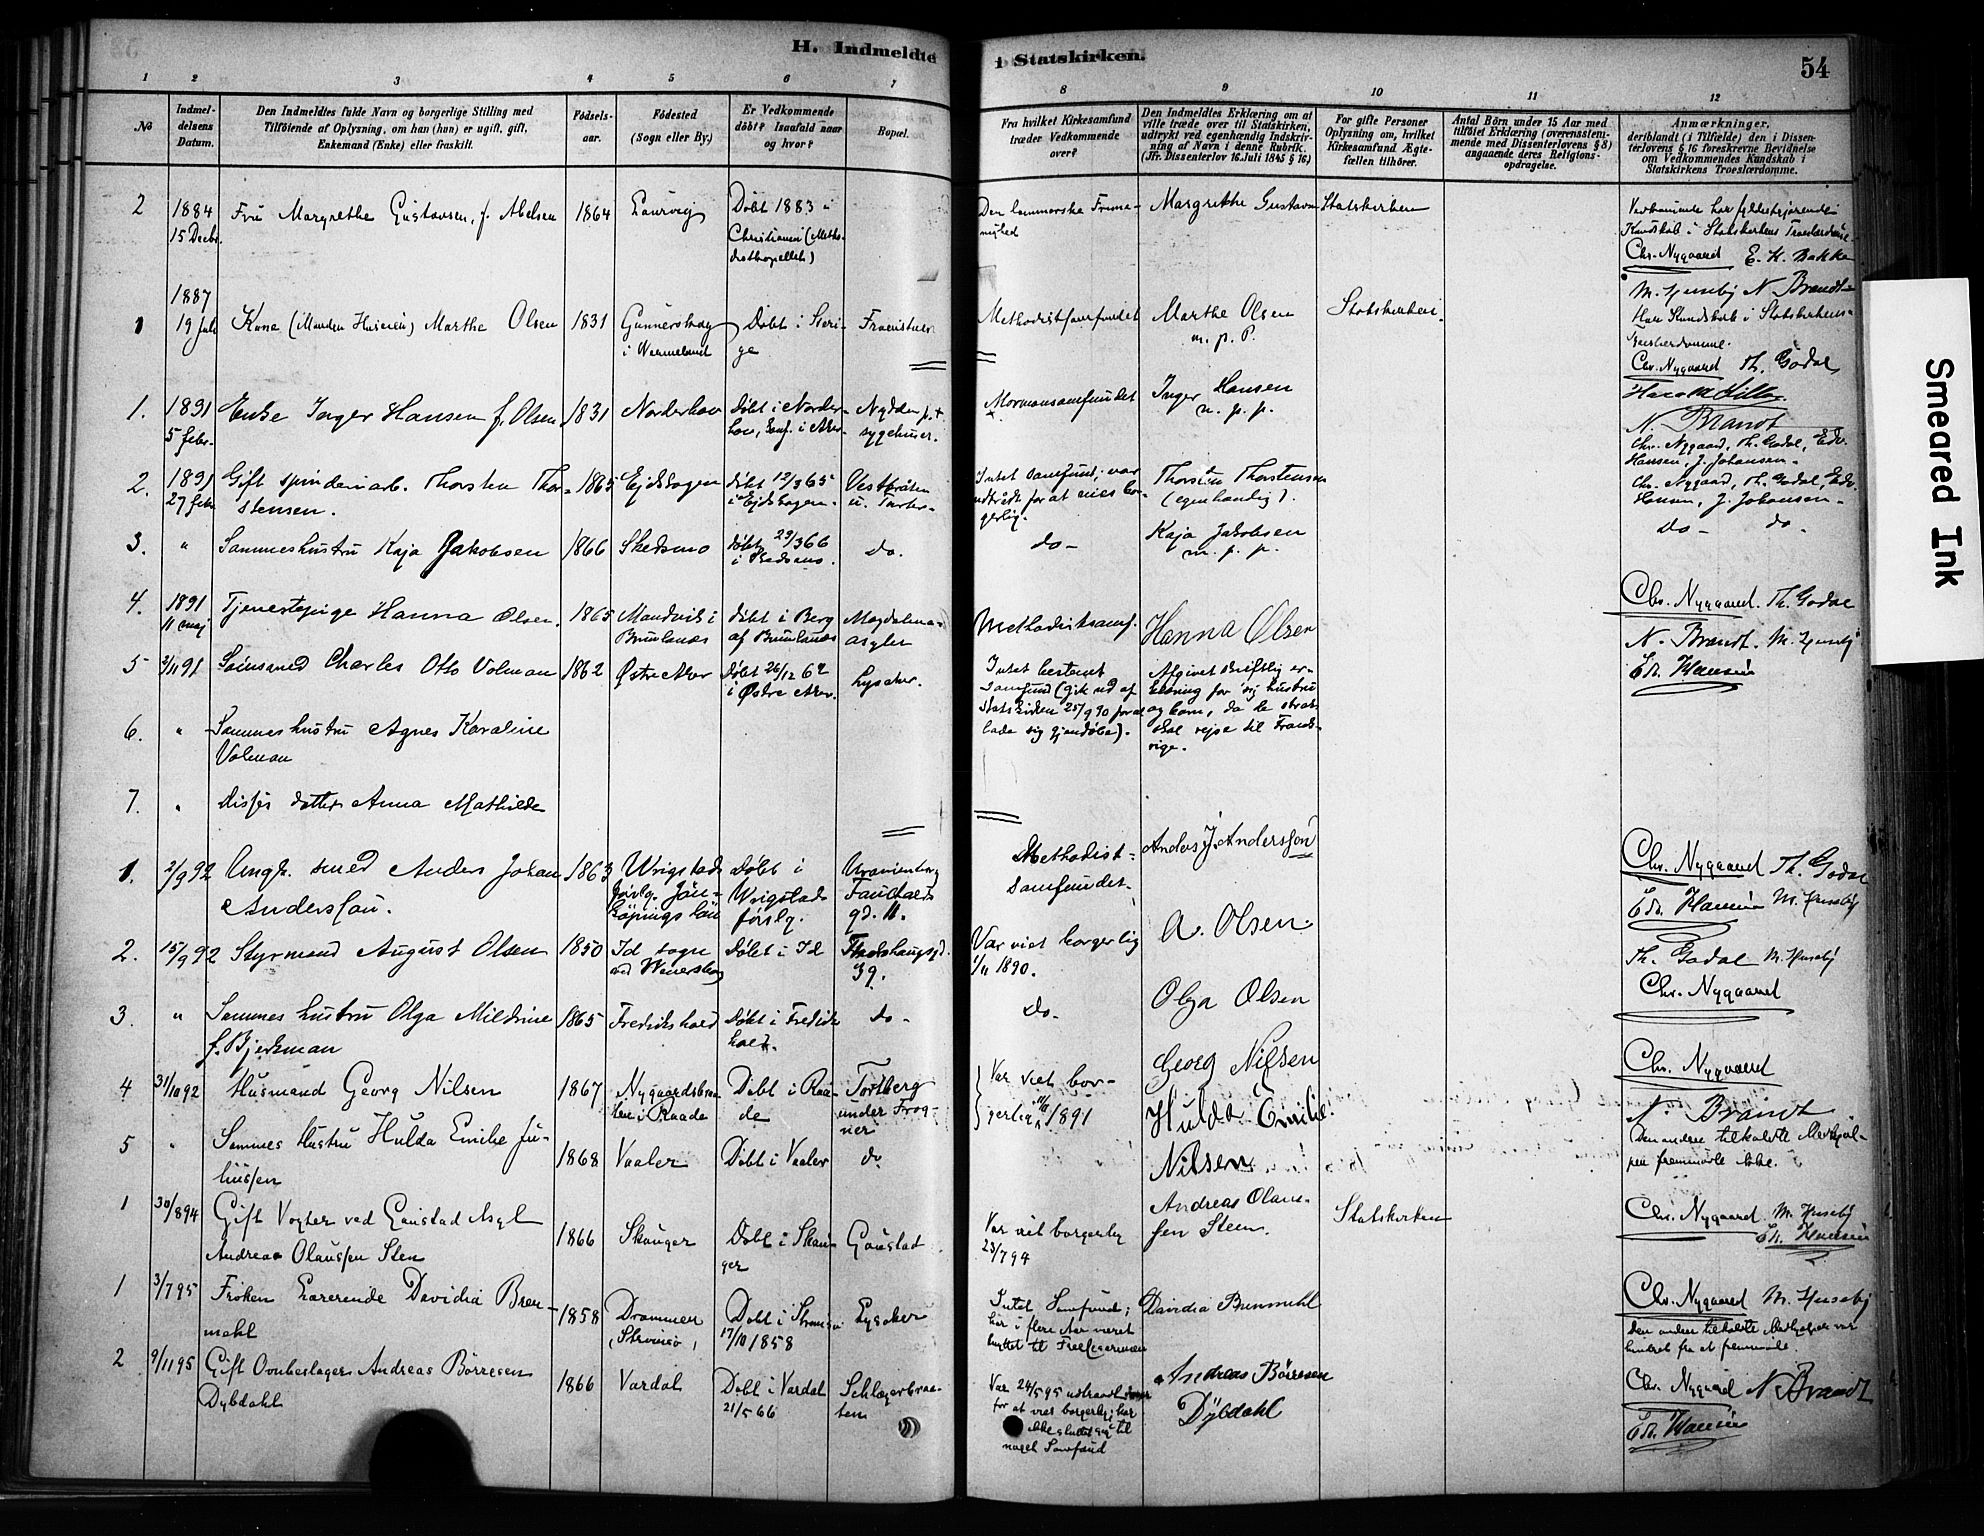 H. Indmeldte i Statskirken.
54
1 2 3 4 5 6 7 8 9 10 11 12
No
Indmel-
delsens
Datum.
Den Indmeldtes fulde Navn og borgerlige Stilling med
Tilføiende af Oplysning, om han (hun) er ugift, gift,
Enkemand (Enke) eller fraskilt.
Fødsels-
aar.
Fødested
(Sogn eller By.)
Er Vedkommende
døbt? Isaafald naar
og hvor?
Bopæl.
Fra hvilket Kirkesamfund
træder Vedkommende
over?
Den Indmeldtes Erklæring om at
ville træde over til Statskirken,
udtrykt ved egenhændig Indskriv-
ning af Navn i denne Rubrik.
(Jfr. Dissenterlov 16. Juli 1845 § 16)
For gifte Personer
Oplysning om, hvilket
Kirkesamfund Ægte-
fællen tilhører.
Antal Børn under 15 Aar med
tilføiet Erklæring (overensstem-
mende med Dissenterlovens § 8)
angaaende deres Religions-
opdragelse.
Anmærkninger,
deriblandt (i Tilfælde) den i Dissen-
terlovens § 16 foreskrevne Bevidnelse
om Vedkommendes Kundskab i
Statskirkens Troeslærdomme.
2
1884
15 Decbr.
Fru Margrethe Gustavsen, f. Abelsen
1864
Laurvig
Døbt 1883 i
Christiania (Metho-
distkapellet)
Margrethe Gustavsen
Statskirken
Kundskab i Statskirkens Troeslærdomme.
Chr. Nygaard E. H. Bakke
1
1887
19 Juli
Kone (Manden Huseier) Marthe Olsen
1831
i Wermeland
Døbt i Sveri-
ge
Methodistsamfundet
Marthe Olsen
m. p. P.
Statskirken.
M. Huseby N. Brandt
Har Kundskab i Statskirkens
Chr. Nygaard Th. Godal
1.
1891
5 febr.
Enke Inger Hansen f. Olsen
1831
Norderhov
døbt i Norder-
hov, konf. i Aker
sygehuset.
Mormonsamfundet
Inger Hansen
m. p. p.
N. Brandt
Chr. Nygaard, Th. Godal, Edv.
Hansen, J. Johansen.
2.
1891
27 febr.
Gift spinderiarb. Thorsten Thor-
stensen.
1865
Ejdskogen
døbt 12/3 65
i Ejdskogen.
Vestbråten
Intet samfund; var
udtrådt for at vies bor-
gerlig.
Thorsten Thorstensen
(egenhændig).
Chr. Nygaard, Th. Godal, Edv.
Hansen, J. Johansen.
3.
"
Sammes hustru Kaja Jakobsen
1866
Skedsmo
døbt 29/3 66
i Skedsmo.
do.
do
Kaja Jakobsen
m. p. p.
do do
4.
1891
11 maj
Tjenestepige Hanna Olsen.
1865
Mandvik i
Brunlanæs
døbt i Berg
af Brunlanæs
Magdalena-
asylet
Methodistsamf.
Hanna Olsen
Chr. Nygaard. Th. Godal
N. Brandt. M. Huseby
Ed. Hansen
5
2/11 91
Charles Otto Volman
1862
Østre Aker
Døbt 26/12 62
i Østre Aker.
Lysaker.
Intet bestemt
Samfund (gik ud af
Statskirken 25/9 90 for at
lade sig gjendøbe).
Afgivet skriftlig er-
klæring for sig hustru
og barn, da de straks
skal rejse til Frank-
rige.
6.
"
Sammes hustru Agnes Karoline
Volman
7.
"
Disses datter Anna Mathilde
1.
2/9 92
Ungk. smed Anders Johan
Andersson.
1863
Wrigstads
forslg. Jön-
köpings län
Døbt i
Wrigstads
førslg.
Uranienborg
gd. 11.
Methodist-
Samfundet.
Anders J. Andersson
Chr. Nygaard Th. Godal
Ed. Hansen M. Huseby
2.
15/9 92
Styrmand August Olsen
1850
Id sogn
ved Wenersborg
Døbt i Id
39.
Var viet borgerlig
1/11 1890.
A. Olsen.
Th. Godal M. Huseby
Chr. Nygaard
3.
"
Sammes hustru Olga Mildrine
f. Bjerkman
1865
Fredrikshald
Døbt i Fredriks-
hald.
do
do
Olga Olsen
4
31/10 92
Husmand Georg Nilsen
1867
Nygaardsbraa-
ten i Raade
Døbt i Raa-
de
Torsberg
under Frog-
ner
Var viet bor-
gerlig 1891
Georg Nilsen
Chr. Nygaard
N. Brandt
5
"
Sammes Hustru Hulda Emilie Ju-
liussen
1868
Vaaler
Døbt i Vaaler
do
Hulda Emilie
Nilsen
Den anden tilkaldte Medhjæl-
per fremmødte ikke.
1
30/8 94
Gift Vogter ved Gaustad Asyl
Andreas Olaussen Sten
1866
Skauger
Døbt i Skau-
ger
Gaustad
Var viet borgerlig
23/7 94
Andreas Olaus-
sen Steen.
Statskirken
Chr. Nygaard M. Huseby
Ed. Hansen
1
3/7 95
Frøken Lærerinde Davidia Bren-
mehl
1858
Drammen
(Strømsø)
Døbt i Strømsø
17/10 1858
Lysaker
Intet Samfund;
har i flere Aar været
knyttet til
Davidia Brenmehl
Chr. Nygaard M. Huseby
Den anden tilkaldte Medhjælper var
hindret fra at fremmøde.
2
9/11 95
Gift Ovnbeslager Andreas Børresen
Dybdahl
1866
Vardal
Døbt i Vardal
21/5 66
Var 24/5 95 udtraadt
for at vies borgerlig; har
ikke sluttet sig til
noget Samfund
Andreas Børresen
Dybdahl
Chr. Nygaard N. Brandt
Ed. Hansen
Smeared Ink